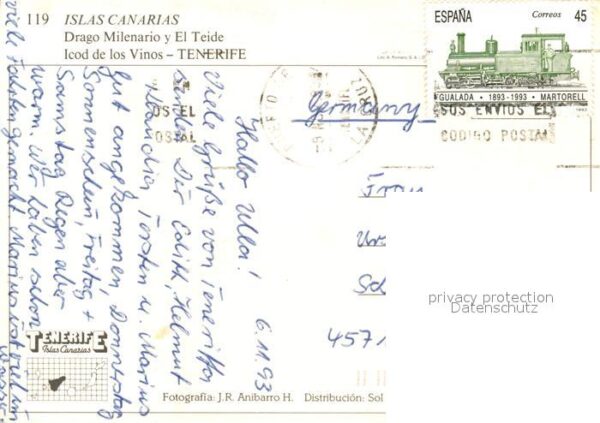 119 ISLAS CANARIAS
Drago Milenario y El Teide
Icod de los Vinos – TENERIFE
ESPAÑA Correos 45
IGUALADA • 1893-1993 • MARTORELL
SUS ENVIOS EL
CODIGO POSTAL
OSTEL
OSTAL
Germany
Hallo Ulla!
6.11.93
Viele Grüße von Teneriffa
senden Dir Edith, Helmut
Klaudia Torsten u. Marius
gut angekommen, Donnerstag
Sonnenschein, Freitag +
Samstag Regen aber
warm. Wir haben schon
viele Fahrten gemacht Marius ist viel im
Wasser.
Frau
457
privacy protection
Datenschutz
TENERIFE
Islas Canarias
Fotografía: J.R. Anibarro H. Distribución: Sol